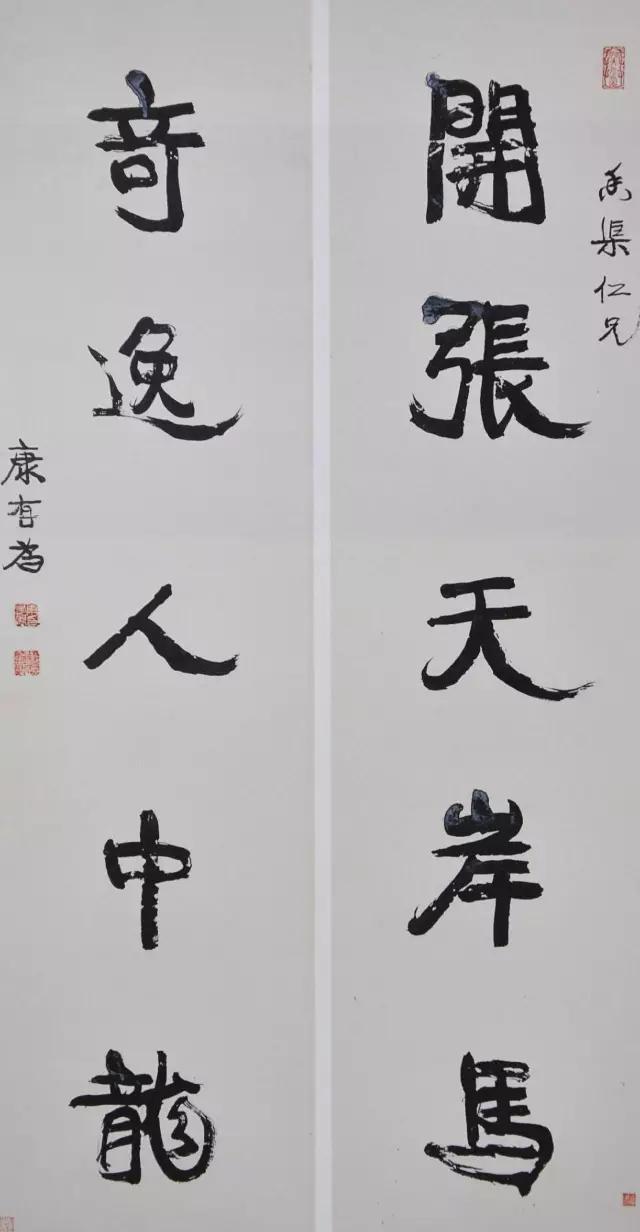 開張天岸馬
渠仁兄
奇逸人中龍
康有為